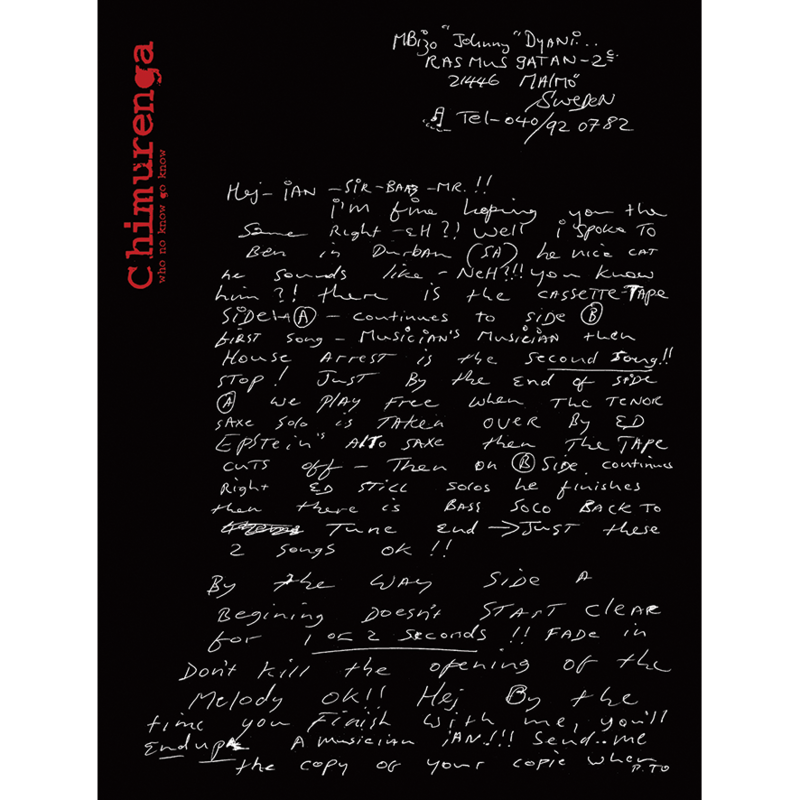 Chimurenga
who no know go know
MBizo "Johnny" Dyani...
RASMUSGATAN-2c.
21446 MALMÖ
SWEDEN
Tel-040/92 07 82
Hej- iAN -SiR-BAAS-MR.!!
i'm fine hoping you the
Same Right -EH?! Well i spoke TO
Ben in Durban (SA) he nice CAT
he sounds like - NeH?!! you know
him?! there is the CASSETTE-TAPE
SiDE A - continues to side B
first song - Musician's Musician then
House Arrest is the second song!!
STOP! Just By the End of side
A we play free when THE TENOR
SAXE Solo is TAKen OVER By ED
EPSTein's ALTO SAXE then THE TAPE
cuts off - Then on B Side continues
Right ED Still solos he finishes
then there is BASS SOLO BACK TO
Tune End → Just these
2 songs ok!!
By the WAY Side A
Begining Doesn't START CleAR
for 1 or 2 seconds!! FADE in
Don't kill the opening of the
Melody OK!! Hej By the
time you Finish with me, you'll
End up A Musician iAN!!! Send..me
the copy of your copie when
P.TO